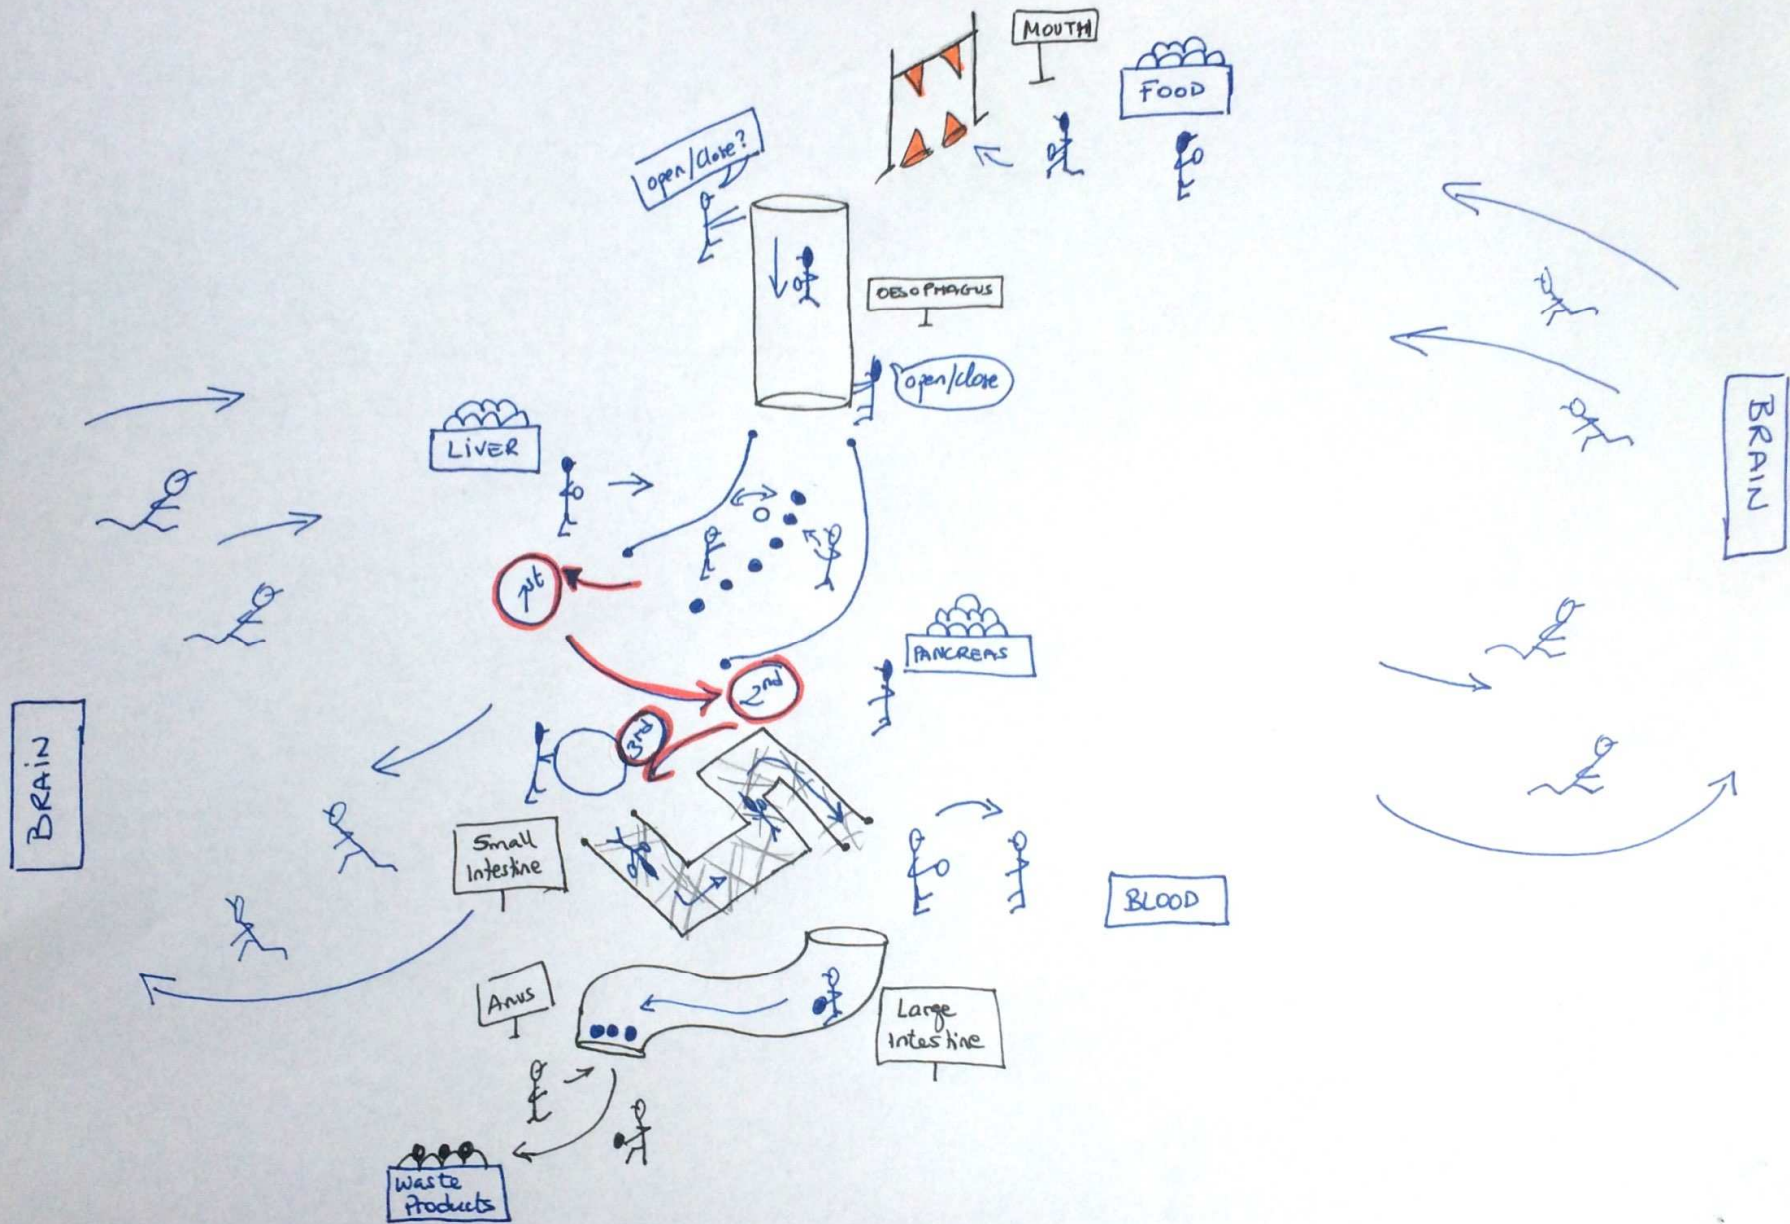 MOUTH
FOOD
open/close?
OESOPHAGUS
open/close
LIVER
BRAIN
1st
PANCREAS
2nd
3rd
BRAIN
Small
Intestine
BLOOD
Anus
Large
Intestine
Waste
Products